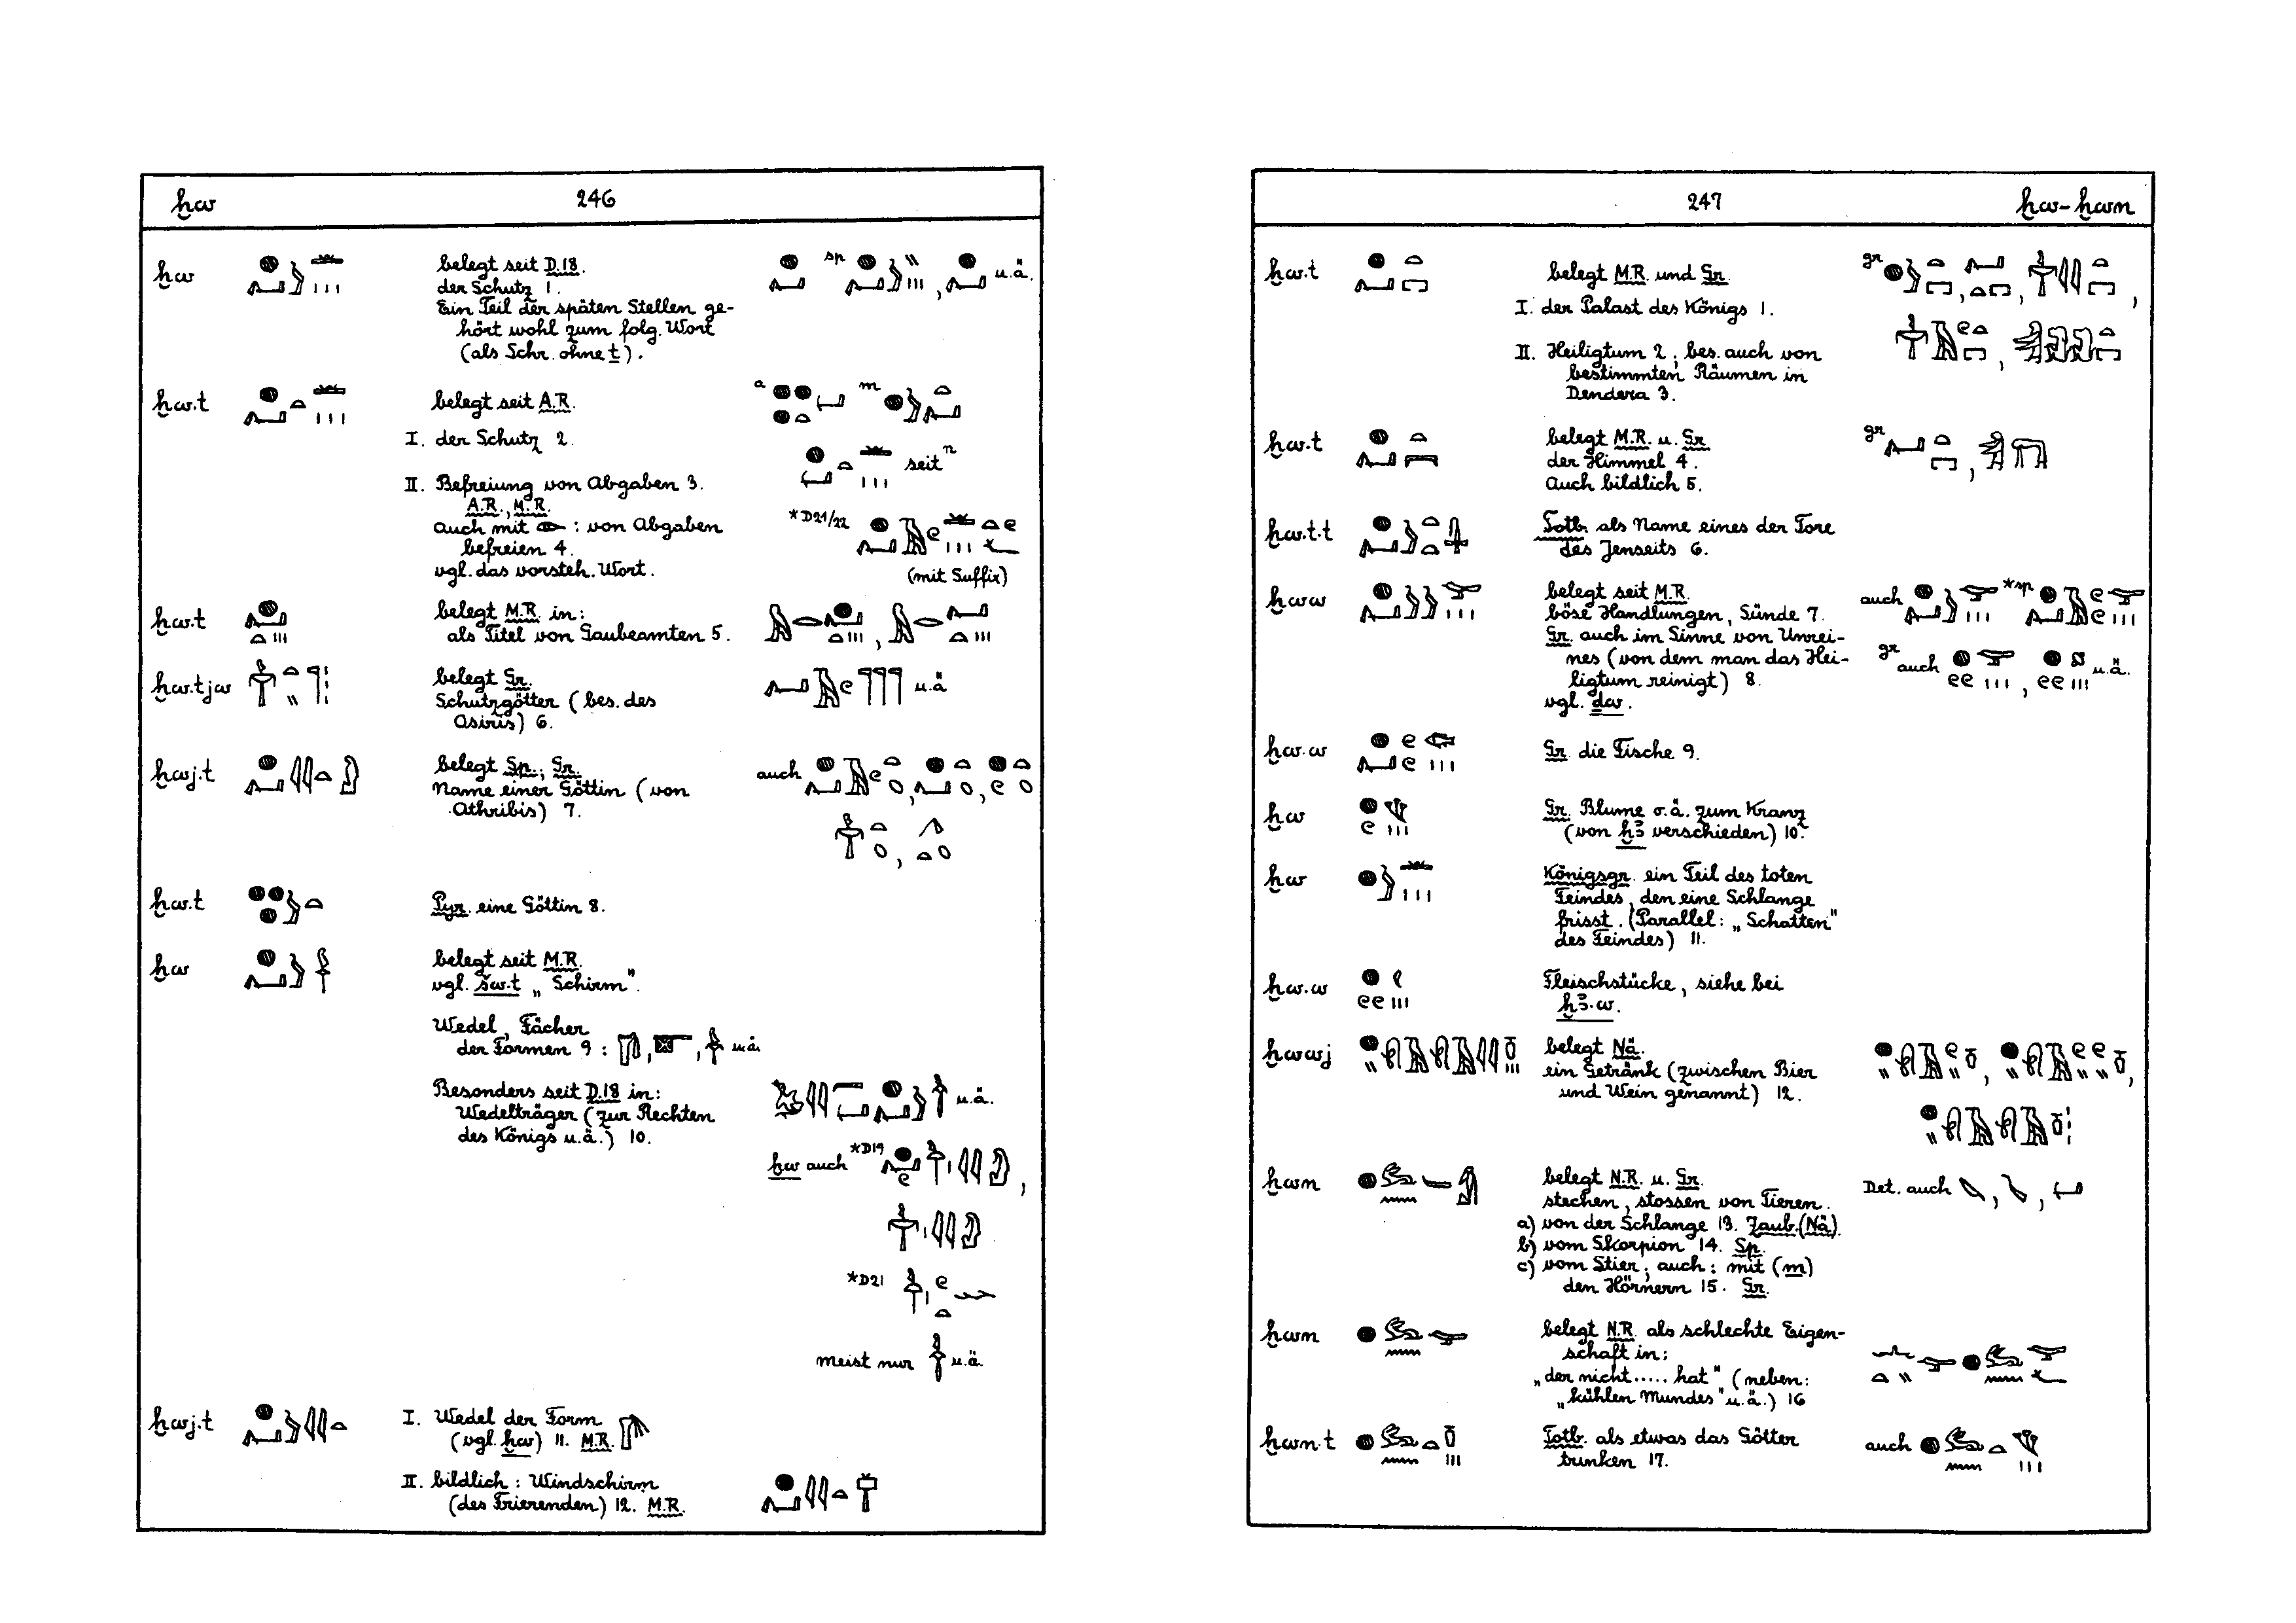 ḫw 246
ḫw belegt seit D.18. sp u.ä.
der Schutz 1.
Ein Teil der späten Stellen ge-
hört wohl zum folg. Wort
(als Schr. ohne t).
ḫw.t belegt seit A.R. a m
I. der Schutz 2.
seit n
II. Befreiung von Abgaben 3.
A.R., M.R.
auch mit : von Abgaben *D21/22
befreien 4.
vgl. das vorsteh. Wort. (mit Suffix)
ḫw.t belegt M.R. in:
als Titel von Gaubeamten 5.
ḫw.tjw belegt Gr. u.ä
Schutzgötter (bes. des
Osiris) 6.
ḫwj.t belegt Sp.; Gr. auch
Name einer Göttin (von
Athribis) 7.
ḫw.t Pyr. eine Göttin 8.
ḫw belegt seit M.R.
vgl. šw.t „Schirm".
Wedel, Fächer
der Formen 9 : , , u.ä.
Besonders seit D.18 in: u.ä.
Wedelträger (zur Rechten
des Königs u.ä.) 10.
ḫw auch *D19
*D21
meist nur u.ä.
ḫwj.t I. Wedel der Form
(vgl. ḫw) 11. M.R.
II. bildlich : Windschirm
(des Frierenden) 12. M.R.
247 ḫw-ḫwn
ḫw.t belegt M.R. und Gr. gr
I. der Palast des Königs 1.
II. Heiligtum 2; bes. auch von
bestimmten Räumen in
Dendera 3.
ḫw.t belegt M.R. u. Gr. gr
der Himmel 4.
Auch bildlich 5.
ḫw.t.t Totb. als Name eines der Tore
des Jenseits 6.
ḫww belegt seit M.R. auch *sp
böse Handlungen, Sünde 7.
Gr. auch im Sinne von Unrei-
nes (von dem man das Hei- gr auch u.ä.
ligtum reinigt) 8.
vgl. ḏw.
ḫw.w Gr. die Fische 9.
ḫw Gr. Blume o.ä. zum Kranz
(von ḫꜣ verschieden) 10.
ḫw Königsgr. ein Teil des toten
Feindes, den eine Schlange
frisst. (Parallel: „Schatten"
des Feindes) 11.
ḫw.w Fleischstücke, siehe bei
ḫꜣ.w.
ḫwwj belegt Nä.
ein Getränk (zwischen Bier
und Wein genannt) 12.
ḫwn belegt N.R. u. Gr. Det. auch
stechen, stossen von Tieren.
a) von der Schlange 13. Zaub.(Nä)
b) vom Skorpion 14. Sp.
c) vom Stier; auch: mit (m)
den Hörnern 15. Gr.
ḫwn belegt N.R. als schlechte Eigen-
schaft in:
„der nicht..... hat" (neben:
„kühlen Mundes" u.ä.) 16
ḫwn.t Totb. als etwas das Götter auch
trinken 17.